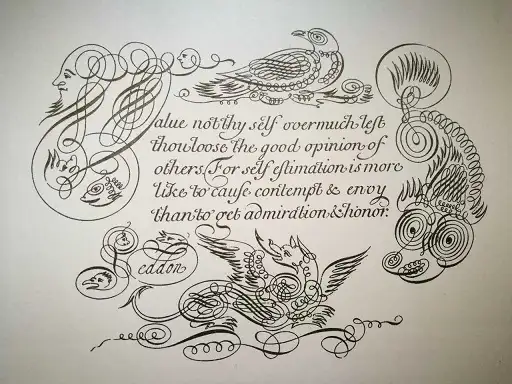 Value not thy self overmuch lest
thou loose the good opinion of
others. For self estimation is more
like to cause contempt & envy
than to get admiration & honor.
Seddon